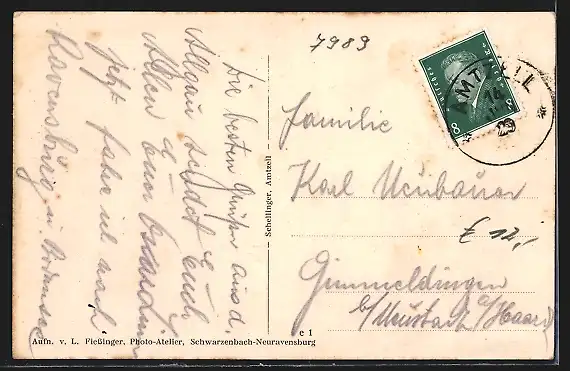 7989
Die besten Grüße aus d.
Allgäu sendet Euch
Allen Euer
Jetzt fahre ich nach
Ravensburg u. Bodensee
Schellinger, Amtzell
Familie
Karl Neubauer
€ 12,-
Gimmeldingen
b/Neustadt a/Haard
AMTZELL
14
29
8
8
Aufn. v. L. Fießinger, Photo-Atelier, Schwarzenbach-Neuravensburg
c 1